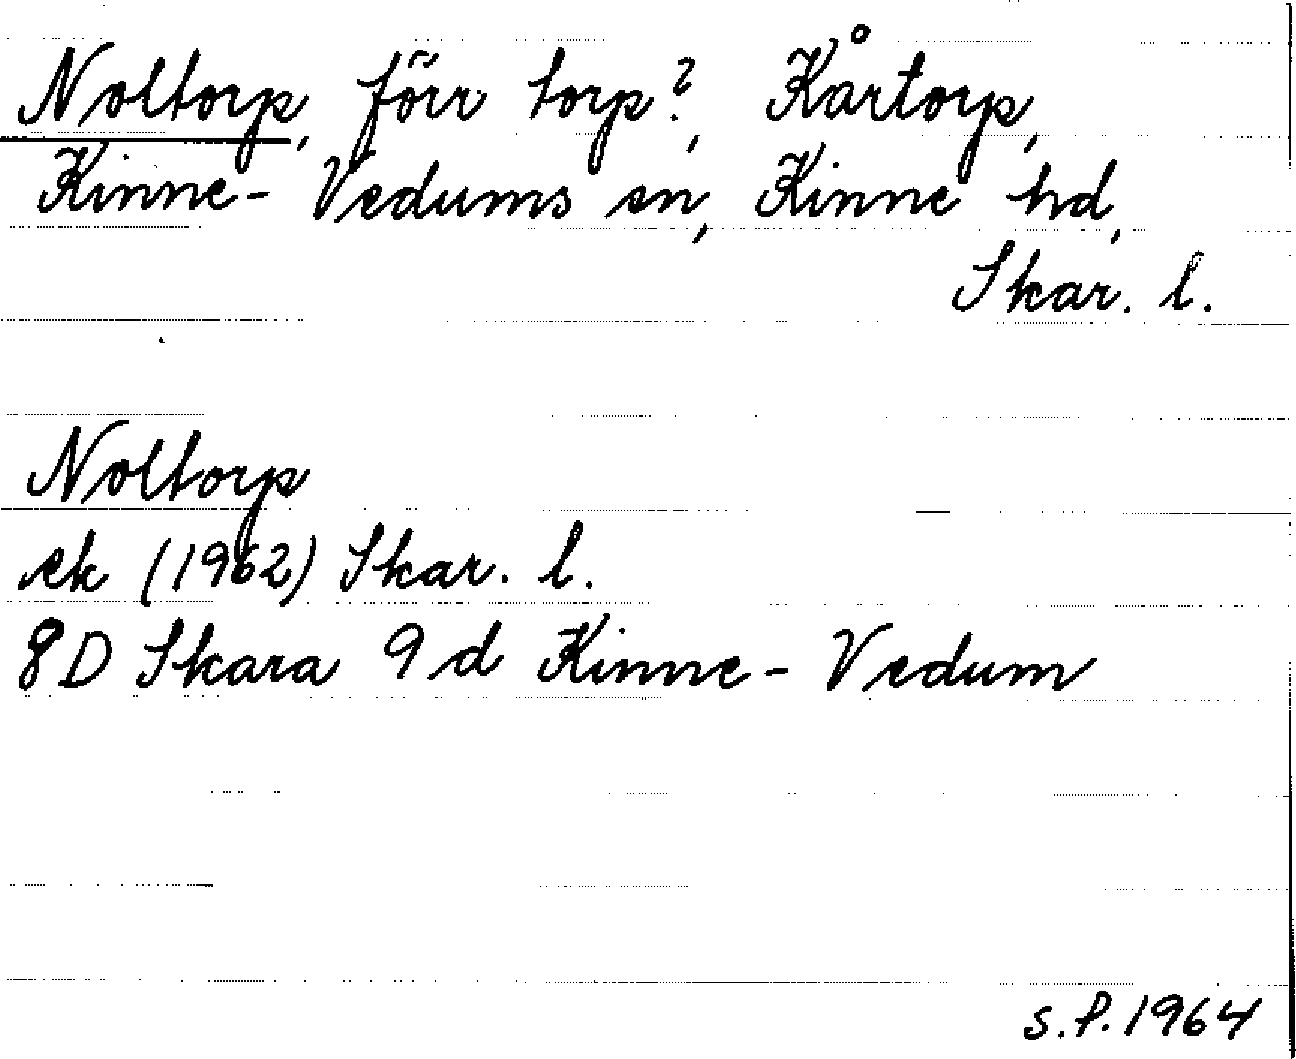 Noltorp, förr torp?, Kårtorp,
Kinne-Vedums sn, Kinne hd,
Skar. l.
Noltorp
ek (1962) Skar. l.
8D Skara 9d Kinne-Vedum
S.P. 1964